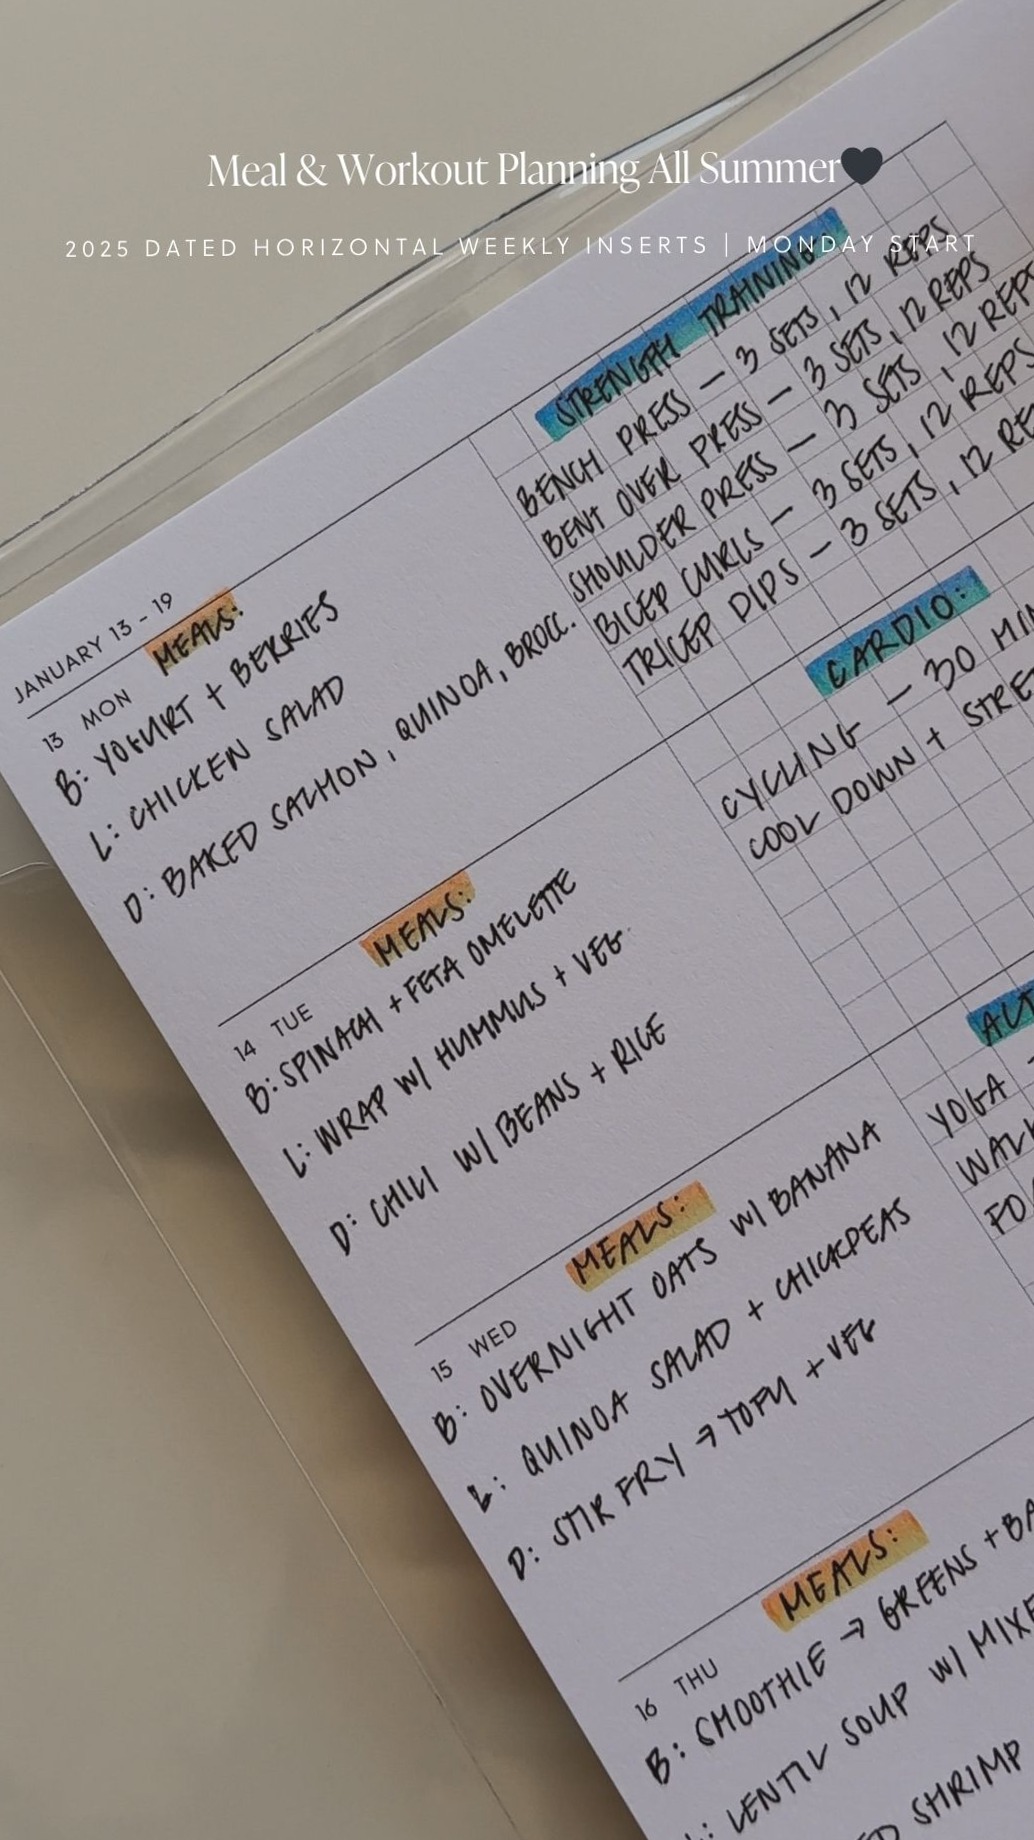 Meal & Workout Planning All Summer🖤
2025 DATED HORIZONTAL WEEKLY INSERTS | MONDAY START
JANUARY 13 - 19
13 MON
MEALS:
B: YOGURT + BERRIES
L: CHICKEN SALAD
D: BAKED SALMON, QUINOA, BROCC.
STRENGTH TRAINING
BENCH PRESS — 3 SETS, 12 REPS
BENT OVER PRESS — 3 SETS, 12 REPS
SHOULDER PRESS — 3 SETS, 12 REPS
BICEP CURLS — 3 SETS, 12 REPS
TRICEP DIPS — 3 SETS, 12
14 TUE
MEALS:
B: SPINACH + FETA OMELETTE
L: WRAP W/ HUMMUS + VEG.
D: CHILI W/ BEANS + RICE
CARDIO:
CYCLING — 30
COOL DOWN +
15 WED
MEALS:
B: OVERNIGHT OATS W/ BANANA
L: QUINOA SALAD + CHICKPEAS
D: STIR FRY → TOFU + VEG
YOGA
16 THU
MEALS:
B: SMOOTHIE → GREENS +
LENTIL SOUP W/
SHRIMP